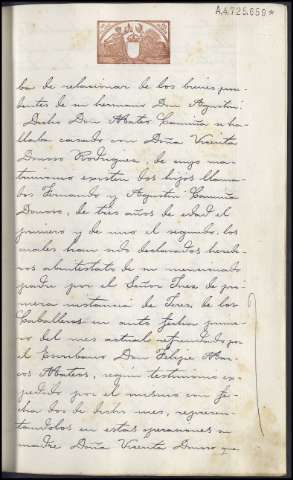 A.4.725.659*
ba de relacionar de los bienes pro-
cedentes de su hermano Don Agustin.
Dicho Don Abator se ha-
llaba casado con Doña Vicenta
Donoso Rodriguez, de cuyo ma-
trimonio existen dos hijos llama-
dos Fernando y Agustin
Donoso, de tres años de edad el
primero y de uno el segundo, los
cuales han sido declarados herede-
ros abintestato de su mencionado
padre por el Señor Juez de pri-
mera instancia de Jerez de los
Caballeros en auto fecha prime-
ro del mes actual refrendado por
el Escribano Don Felipe
segun testimonio ex-
pedido por el mismo con fe-
cha dos de dicho mes, represen-
tandolos en estas operaciones su
madre Doña Vicenta Donoso que